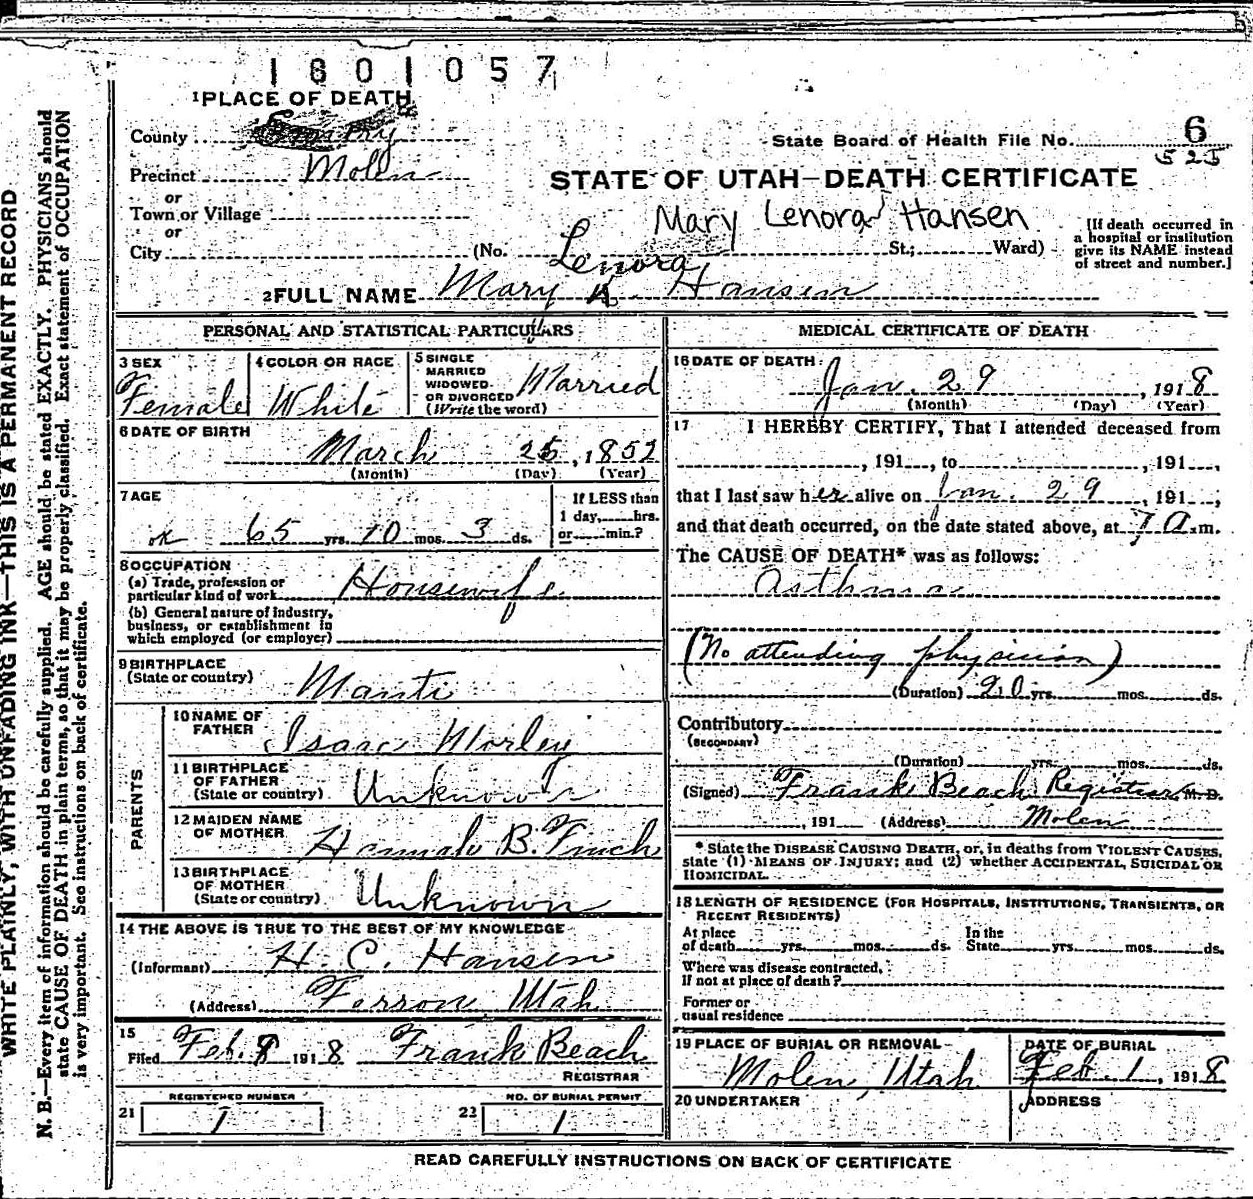 1801057
1 PLACE OF DEATH
County Emery
Precinct Molen
or
Town or Village
or
City
State Board of Health File No. 6
525
STATE OF UTAH—DEATH CERTIFICATE
Mary Lenora Hansen
(No. St.; Ward)
[If death occurred in
a hospital or institution
give its NAME instead
of street and number.]
Lenora
2 FULL NAME Mary K. Hansen
PERSONAL AND STATISTICAL PARTICULARS
3 SEX
Female
4 COLOR OR RACE
White
5 SINGLE
MARRIED
WIDOWED
OR DIVORCED
(Write the word)
Married
6 DATE OF BIRTH
March 25, 1852
(Month) (Day) (Year)
7 AGE
ok 65 yrs. 10 mos. 3 ds.
If LESS than
1 day, hrs.
or min.?
8 OCCUPATION
(a) Trade, profession or
particular kind of work Housewife
(b) General nature of industry,
business, or establishment in
which employed (or employer)
9 BIRTHPLACE
(State or country) Manti
PARENTS
10 NAME OF
FATHER Isaac Morley
11 BIRTHPLACE
OF FATHER
(State or country) Unknown
12 MAIDEN NAME
OF MOTHER Hannah B. Finch
13 BIRTHPLACE
OF MOTHER
(State or country) Unknown
14 THE ABOVE IS TRUE TO THE BEST OF MY KNOWLEDGE
(Informant) H. C. Hansen
(Address) Ferron Utah
15
Filed Feb. 8 1918 Frank Beach
REGISTRAR
21 REGISTERED NUMBER
1
22 NO. OF BURIAL PERMIT
1
MEDICAL CERTIFICATE OF DEATH
16 DATE OF DEATH
Jan. 29, 1918
(Month) (Day) (Year)
17 I HEREBY CERTIFY, That I attended deceased from
, 191 , to , 191 ,
that I last saw her alive on Jan. 29, 191 ,
and that death occurred, on the date stated above, at 7 A.m.
The CAUSE OF DEATH* was as follows:
Asthma
(No attending physician)
(Duration) 20 yrs. mos. ds.
Contributory
(SECONDARY)
(Duration) yrs. mos. ds.
(Signed) Frank Beach Registrar M.D.
, 191 (Address) Molen
* State the DISEASE CAUSING DEATH, or, in deaths from VIOLENT CAUSES,
state (1) MEANS OF INJURY; and (2) whether ACCIDENTAL, SUICIDAL OR
HOMICIDAL.
18 LENGTH OF RESIDENCE (FOR HOSPITALS, INSTITUTIONS, TRANSIENTS, OR
RECENT RESIDENTS)
At place
of death yrs. mos. ds.
In the
State yrs. mos. ds.
Where was disease contracted,
If not at place of death?
Former or
usual residence
19 PLACE OF BURIAL OR REMOVAL
Molen, Utah
DATE OF BURIAL
Feb. 1, 1918
20 UNDERTAKER
ADDRESS
READ CAREFULLY INSTRUCTIONS ON BACK OF CERTIFICATE
WRITE PLAINLY, WITH UNFADING INK—THIS IS A PERMANENT RECORD
N. B.—Every item of information should be carefully supplied. AGE should be stated EXACTLY. PHYSICIANS should
state CAUSE OF DEATH in plain terms, so that it may be properly classified. Exact statement of OCCUPATION
is very important. See instructions on back of certificate.